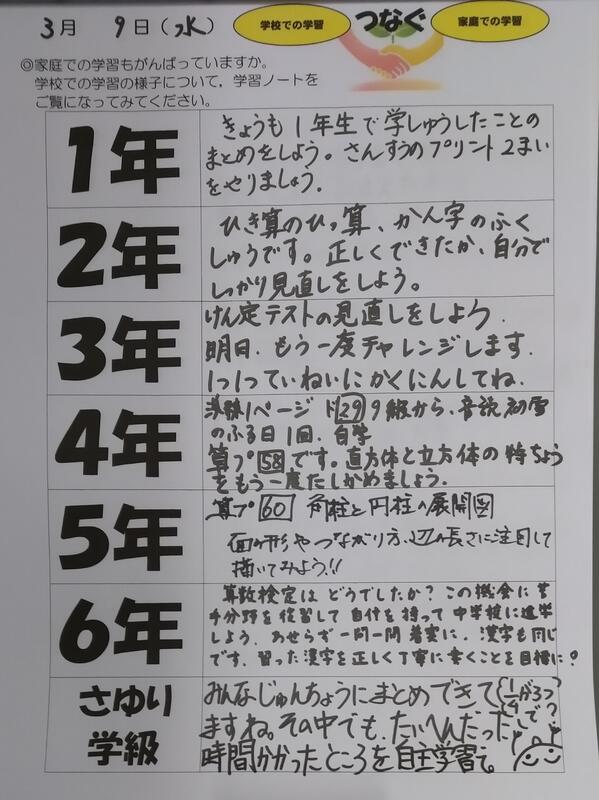 3月 9日(水)
学校での学習 つなぐ 家庭での学習
◎家庭での学習もがんばっていますか。
学校での学習の様子について，学習ノートを
ご覧になってみてください。
1年
きょうも1年生で学しゅうしたことの
まとめをしよう。さんすうのプリント2まい
をやりましょう.
2年
ひき算のひっ算、かん字のふく
しゅうです。正しくできたか、自分で
しっかり見直しをしよう。
3年
けん定テストの見直しをしよう.
明日、もう一度チャレンジします.
1つ1つていねいにかくにんしてね.
4年
1ページ ド29 9級から、音読 初雪
のふる日1回、自学
算プ58です。直方体と立方体の特ちょう
をもう一度たしかめましょう.
5年
算プ60 角柱と円柱の展開図
面の形やつながり方、辺の長さに注目して
描いてみよう!!
6年
算数検定はどうでしたか? この機会に苦
手分野を復習して自信を持って中学校に進学
しよう. あせらず一問一問着実に. 漢字も同じ
です. 習った漢字を正しく丁寧に書くことを目標に!
さゆり
学級
みんなじゅんちょうにまとめできて
ますね。その中でも、たいへんだった
時間かかったところを自主学習で。
1/9が3つで?